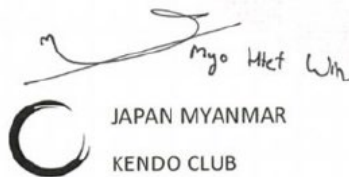 Myo Htet Win
JAPAN MYANMAR
KENDO CLUB